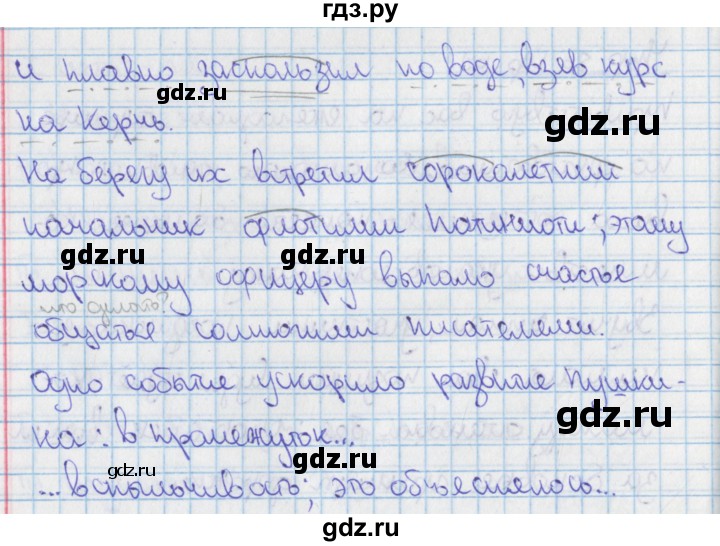 гдз.ру
и плавно заскользил по воде, взяв курс
gdz.ru
на Керчь.
gdz.ru
На берегу их встретил сорокалетний
начальник флотилии Патиниоти; этому
gdz.ru
gdz.ru
морскому офицеру выпало счастье
что делать?
общаться со многими писателями.
Одно событие ускорило развитие Пушки-
gdz.ru
на: в промежуток...
gdz.ru
...вспыльчивость; это объяснялось...
gdz.ru
gdz.ru